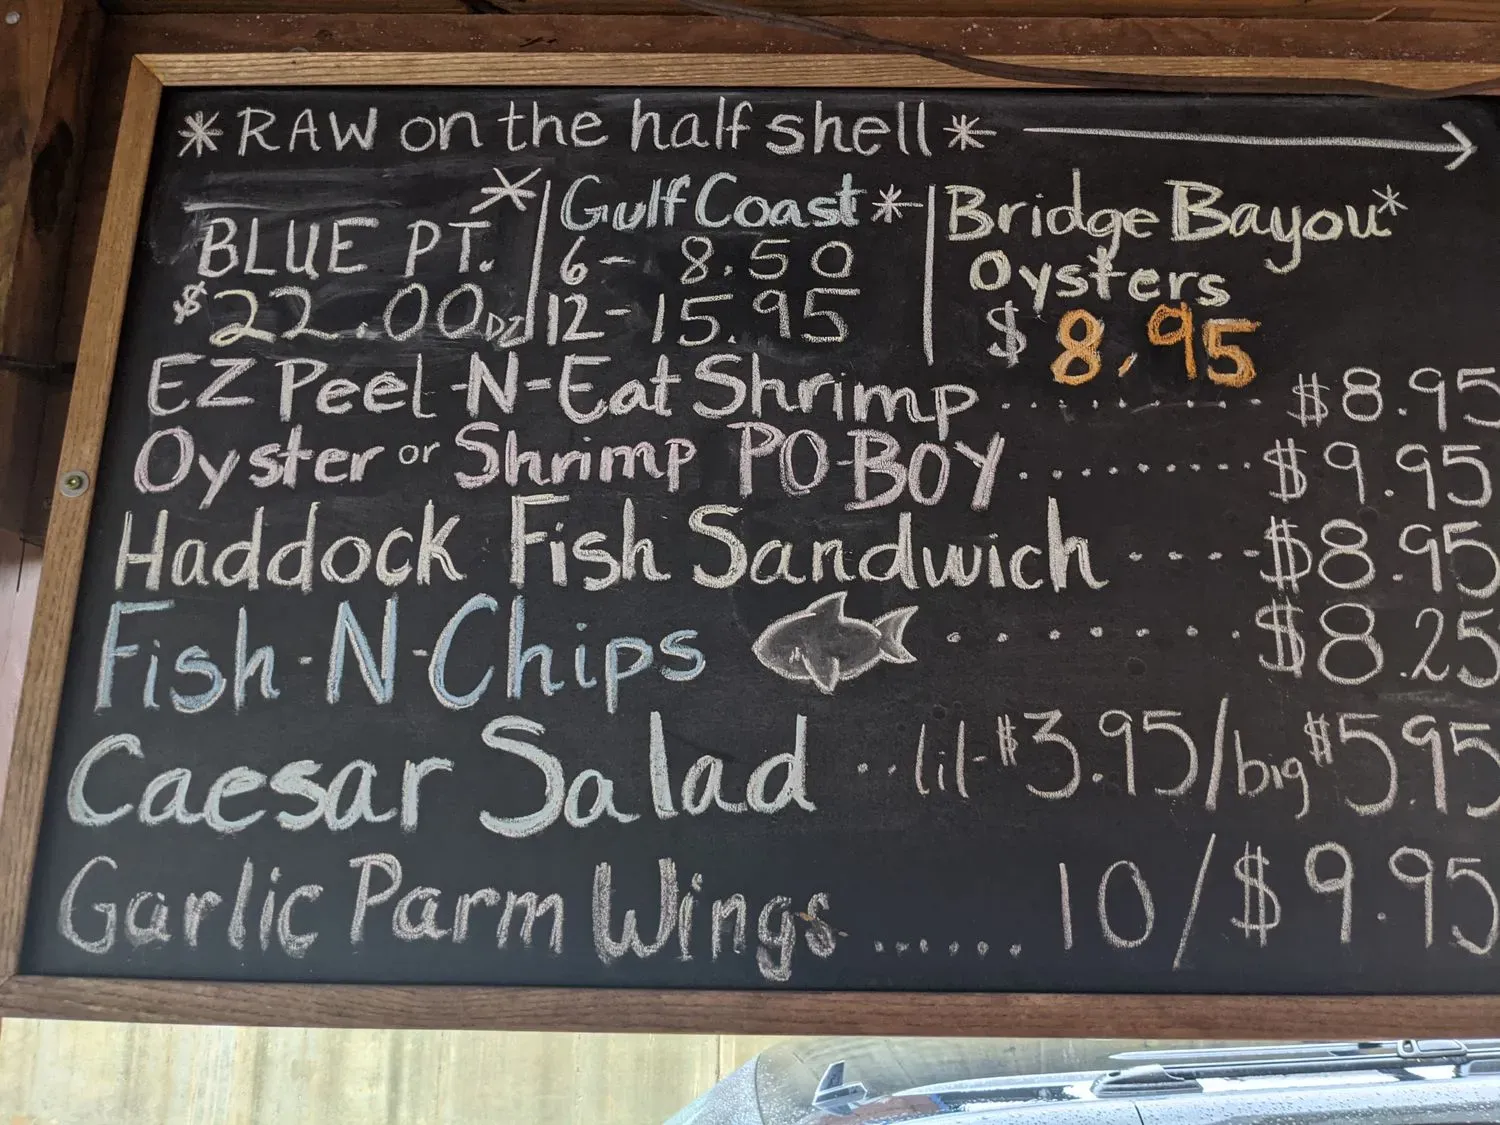 *RAW on the half shell*
BLUE PT.*
$22.00DZ
Gulf Coast*
6- 8.50
12-15.95
Bridge Bayou*
Oysters
$8.95
EZ Peel-N-Eat Shrimp.........$8.95
Oyster or Shrimp PO-BOY.........$9.95
Haddock Fish Sandwich....$8.95
Fish-N-Chips.......$8.25
Caesar Salad ..lil-$3.95/big$5.95
Garlic Parm Wings......10/$9.95